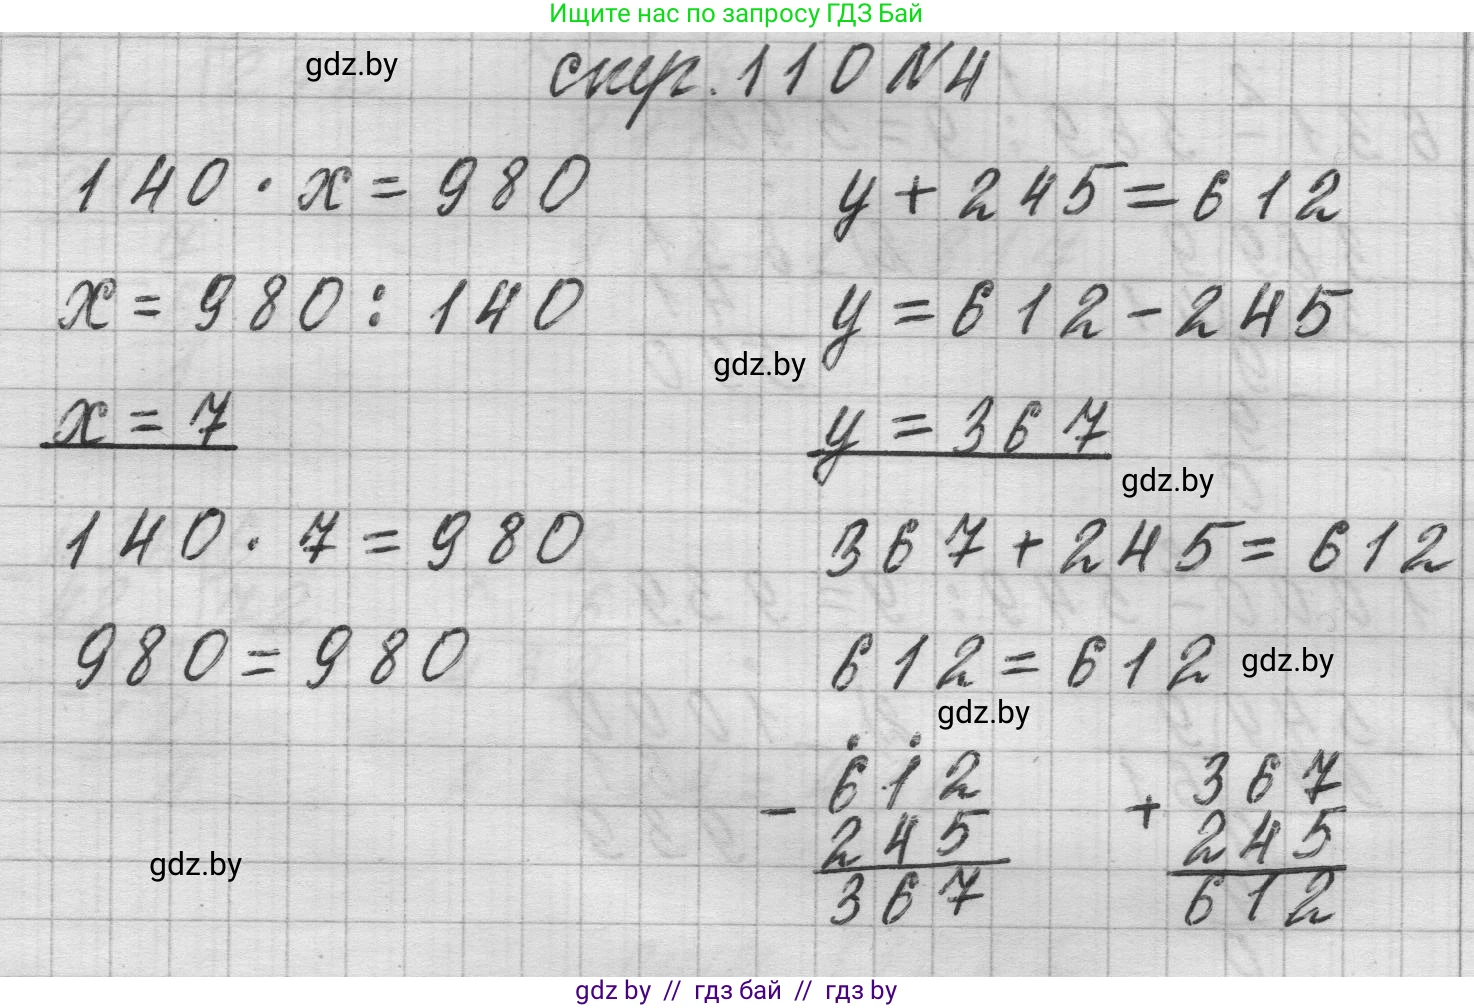 Ищите нас по запросу ГДЗ Бай
gdz.by
стр. 110 №4
140 · x = 980
x = 980 : 140
x = 7
140 · 7 = 980
980 = 980
gdz.by
y + 245 = 612
y = 612 - 245
gdz.by
y = 367
gdz.by
367 + 245 = 612
612 = 612
gdz.by
gdz.by
- 612
245
367
+ 367
245
612
gdz by // гдз бай // гдз by